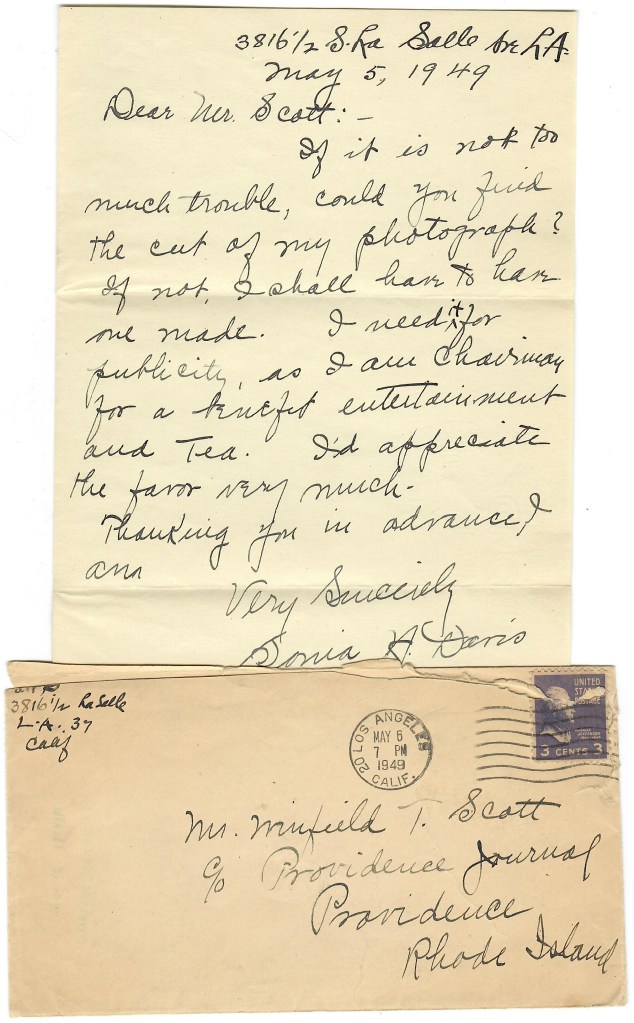 3816 1/2 S. La Salle Ave L.A.
May 5, 1949
Dear Mr. Scott: -
If it is not too
much trouble, could you find
the cut of my photograph?
If not, I shall have to have
one made. I need it for
publicity, as I am Chairman
for a benefit entertainment
and Tea. I'd appreciate
the favor very much.
Thanking you in advance, I
am
Very Sincerely
Sonia H. Davis
3816 1/2 La Salle
L.A. 37
Calif
LOS ANGELES
20
MAY 6
7 PM
1949
CALIF.
UNITED
STATES
POSTAGE
3 CENTS 3
Mr. Winfield T. Scott
c/o Providence Journal
Providence
Rhode Island